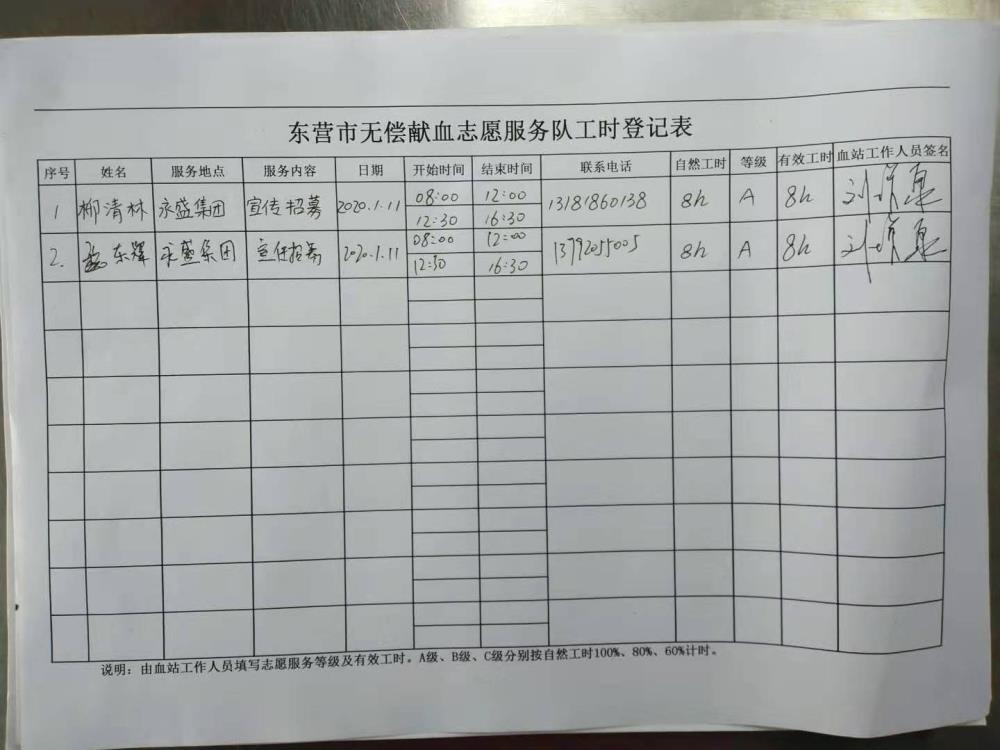 东营市无偿献血志愿服务队工时登记表
序号 姓名 服务地点 服务内容 日期 开始时间 结束时间 联系电话 自然工时 等级 有效工时 血站工作人员签名
1 柳清林 永盛集团 宣传招募 2020.1.11 08:00 12:00 13181860138 8h A 8h
12:30 16:30
2. 东辉 永盛集团 宣传招募 2020.1.11 08:00 12:00 13792055005 8h A 8h
12:30 16:30
说明：由血站工作人员填写志愿服务等级及有效工时。A级、B级、C级分别按自然工时100%、80%、60%计时。